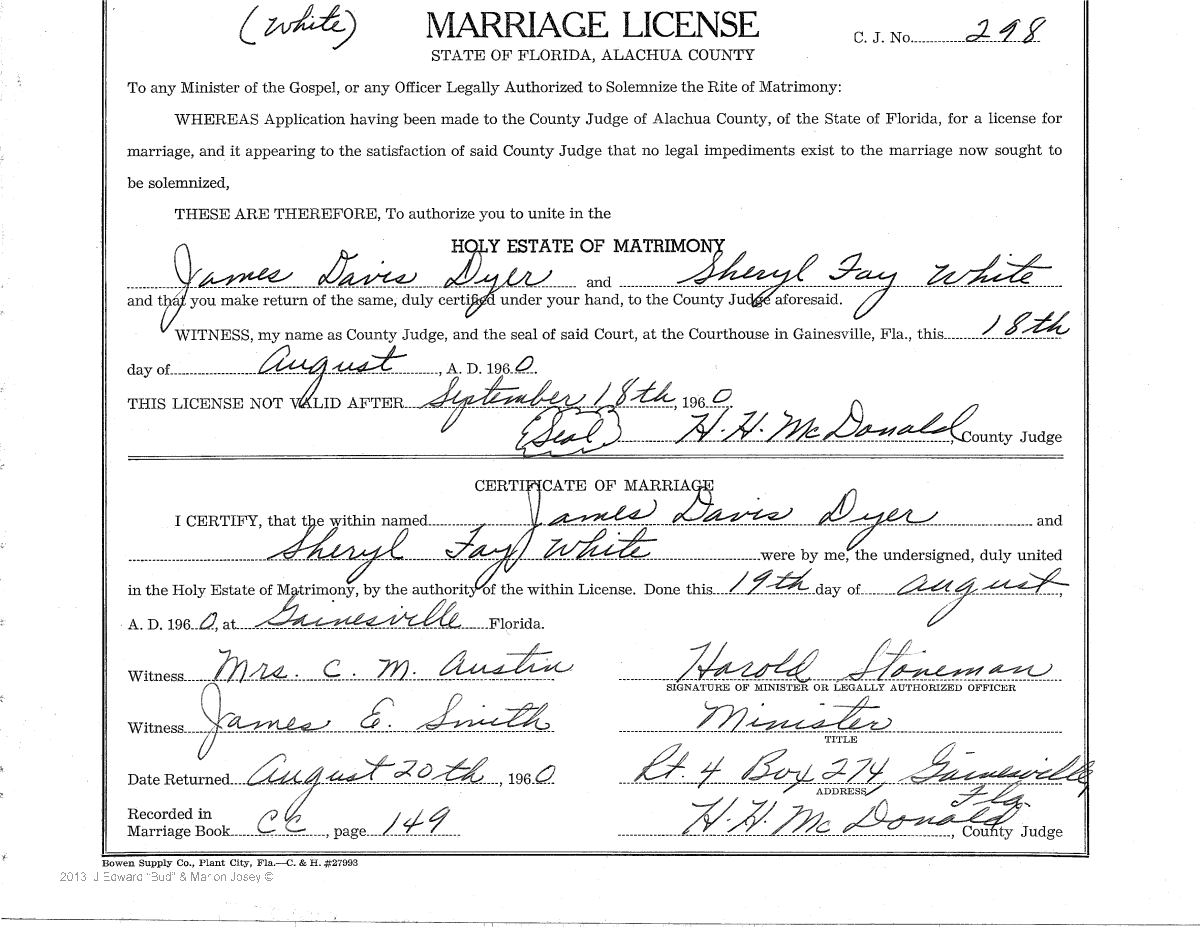 (White)
MARRIAGE LICENSE
C. J. No. 298
STATE OF FLORIDA, ALACHUA COUNTY
To any Minister of the Gospel, or any Officer Legally Authorized to Solemnize the Rite of Matrimony:
WHEREAS Application having been made to the County Judge of Alachua County, of the State of Florida, for a license for
marriage, and it appearing to the satisfaction of said County Judge that no legal impediments exist to the marriage now sought to
be solemnized,
THESE ARE THEREFORE, To authorize you to unite in the
HOLY ESTATE OF MATRIMONY
James Davis Dyer and Sheryl Fay White
and that you make return of the same, duly certified under your hand, to the County Judge aforesaid.
WITNESS, my name as County Judge, and the seal of said Court, at the Courthouse in Gainesville, Fla., this 18th
day of August, A. D. 1960.
THIS LICENSE NOT VALID AFTER September 18th, 1960
(Seal) H. H. McDonald, County Judge
CERTIFICATE OF MARRIAGE
I CERTIFY, that the within named James Davis Dyer and
Sheryl Fay White were by me, the undersigned, duly united
in the Holy Estate of Matrimony, by the authority of the within License. Done this 19th day of August,
A. D. 1960, at Gainesville Florida.
Witness Mrs. C. M. Austin Harold Stoneman
SIGNATURE OF MINISTER OR LEGALLY AUTHORIZED OFFICER
Witness James E. Smith Minister
TITLE
Date Returned August 20th, 1960 Rt. 4 Box 274 Gainesville
ADDRESS Fla.
Recorded in
Marriage Book CC, page 149 H. H. McDonald, County Judge
Bowen Supply Co., Plant City, Fla.—C. & H. #27993
2013 J Edward "Bud" & Marion Josey ©